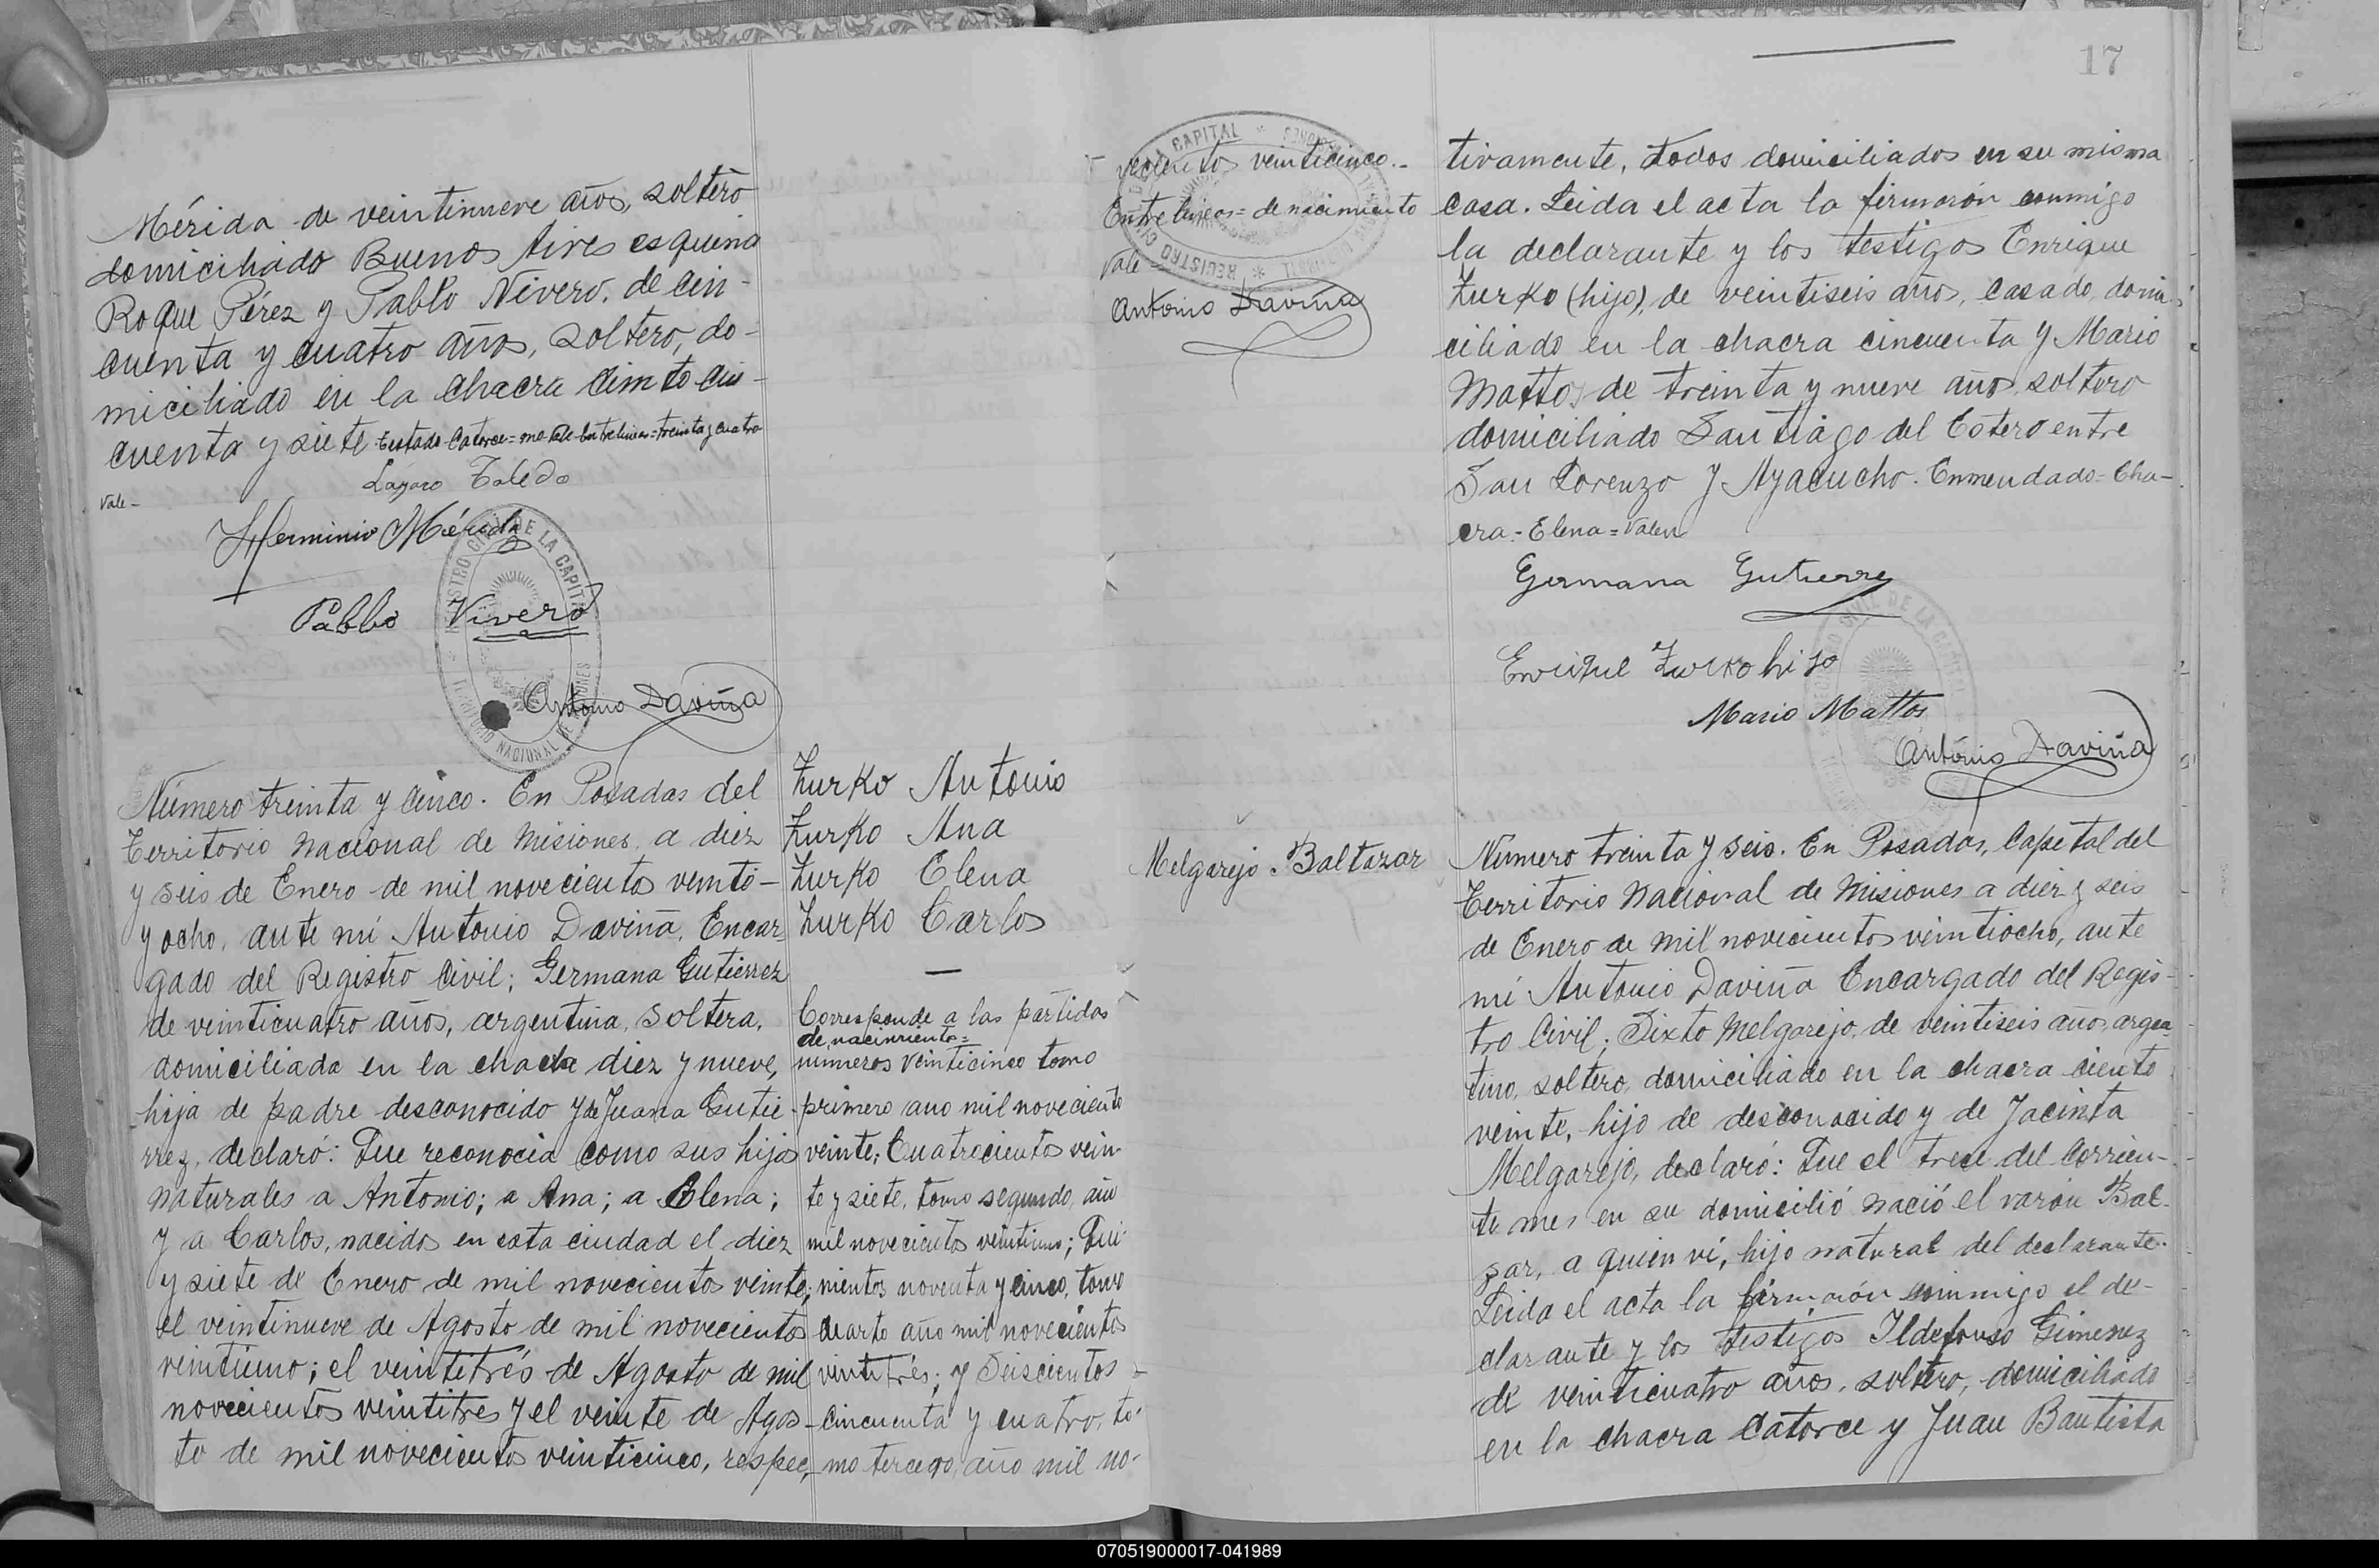 Mérida de veintinueve años, soltero
domiciliado Buenos Aires esquina
Roque Pérez y Pablo Vivero, de cin-
cuenta y cuatro años, soltero, do-
miciliado en la chacra ciento cin-
cuenta y siete Testado-Catorce=no vale-Entrelineas=treinta y cuatro
Vale-
Lázaro Toledo
Herminio Mérida
Pablo Vivero
REGISTRO CIVIL DE LA CAPITAL
TERRITORIO NACIONAL DE MISIONES
Antonio Daviña
Número treinta y cinco. En Posadas del
Territorio Nacional de Misiones, a diez
y seis de Enero de mil novecientos veinti-
y ocho, ante mi Antonio Daviña, Encar-
gado del Registro Civil; Germana Gutierrez
de veinticuatro años, argentina, soltera,
domiciliada en la chacra diez y nueve,
hija de padre desconocido y de Juana Gutie-
rrez, declaró: Que reconocia como sus hijos
naturales a Antonio; a Ana; a Elena;
y a Carlos, nacidos en esta ciudad el diez
y siete de Enero de mil novecientos veinte;
el veintinueve de Agosto de mil novecientos
veintiuno; el veintitrés de Agosto de mil
novecientos veintitres y el veinte de Agos-
to de mil novecientos veinticinco, respec-
Zurko Antonio
Zurko Ana
Zurko Elena
Zurko Carlos
Corresponde a las partidas
de nacimiento=
numeros veinticinco tomo
primero año mil novecientos
veinte; Cuatrocientos vein-
te y siete, tomo segundo, año
mil novecientos veintiuno; Qui-
nientos noventa y cinco, tomo
cuarto año mil novecientos
veintitrés; y Seiscientos
cincuenta y cuatro, to-
mo tercero, año mil no-
17
vecientos veinticinco.-
Entre lineas= de nacimiento
Vale=
Antonio Daviña
REGISTRO CIVIL DE LA CAPITAL
tivamente, todos domiciliados en su misma
casa. Leida el acta la firmaron conmigo
la declarante y los testigos Enrique
Zurko (hijo), de veintiseis años, casado, domi-
ciliado en la chacra cincuenta y Mario
Mattos de treinta y nueve años, soltero
domiciliado Santiago del Estero entre
San Lorenzo y Ayacucho. Enmendado=Cha-
cra=Elena=Valen
Germana Gutierrez
Enrique Zurko hijo
Mario Mattos
Antonio Daviña
Melgarejo Baltazar
Número treinta y seis. En Posadas, Capital del
Territorio Nacional de Misiones a diez y seis
de Enero de mil novecientos veintiocho, ante
mi Antonio Daviña Encargado del Regis-
tro Civil; Sixto Melgarejo, de veintiseis años, argen-
tino, soltero, domiciliado en la chacra ciento
veinte, hijo de desconocido y de Jacinta
Melgarejo, declaró: Que el trece del corrien-
te mes en su domicilió nació el varón Bal-
zar, a quien ví, hijo natural del declarante.
Leida el acta la firmarón conmigo el de-
clarante y los testigos Ildefonso Gimenez
de veinticuatro años, soltero, domiciliado
en la chacra catorce y Juan Bautista
070519000017-041989